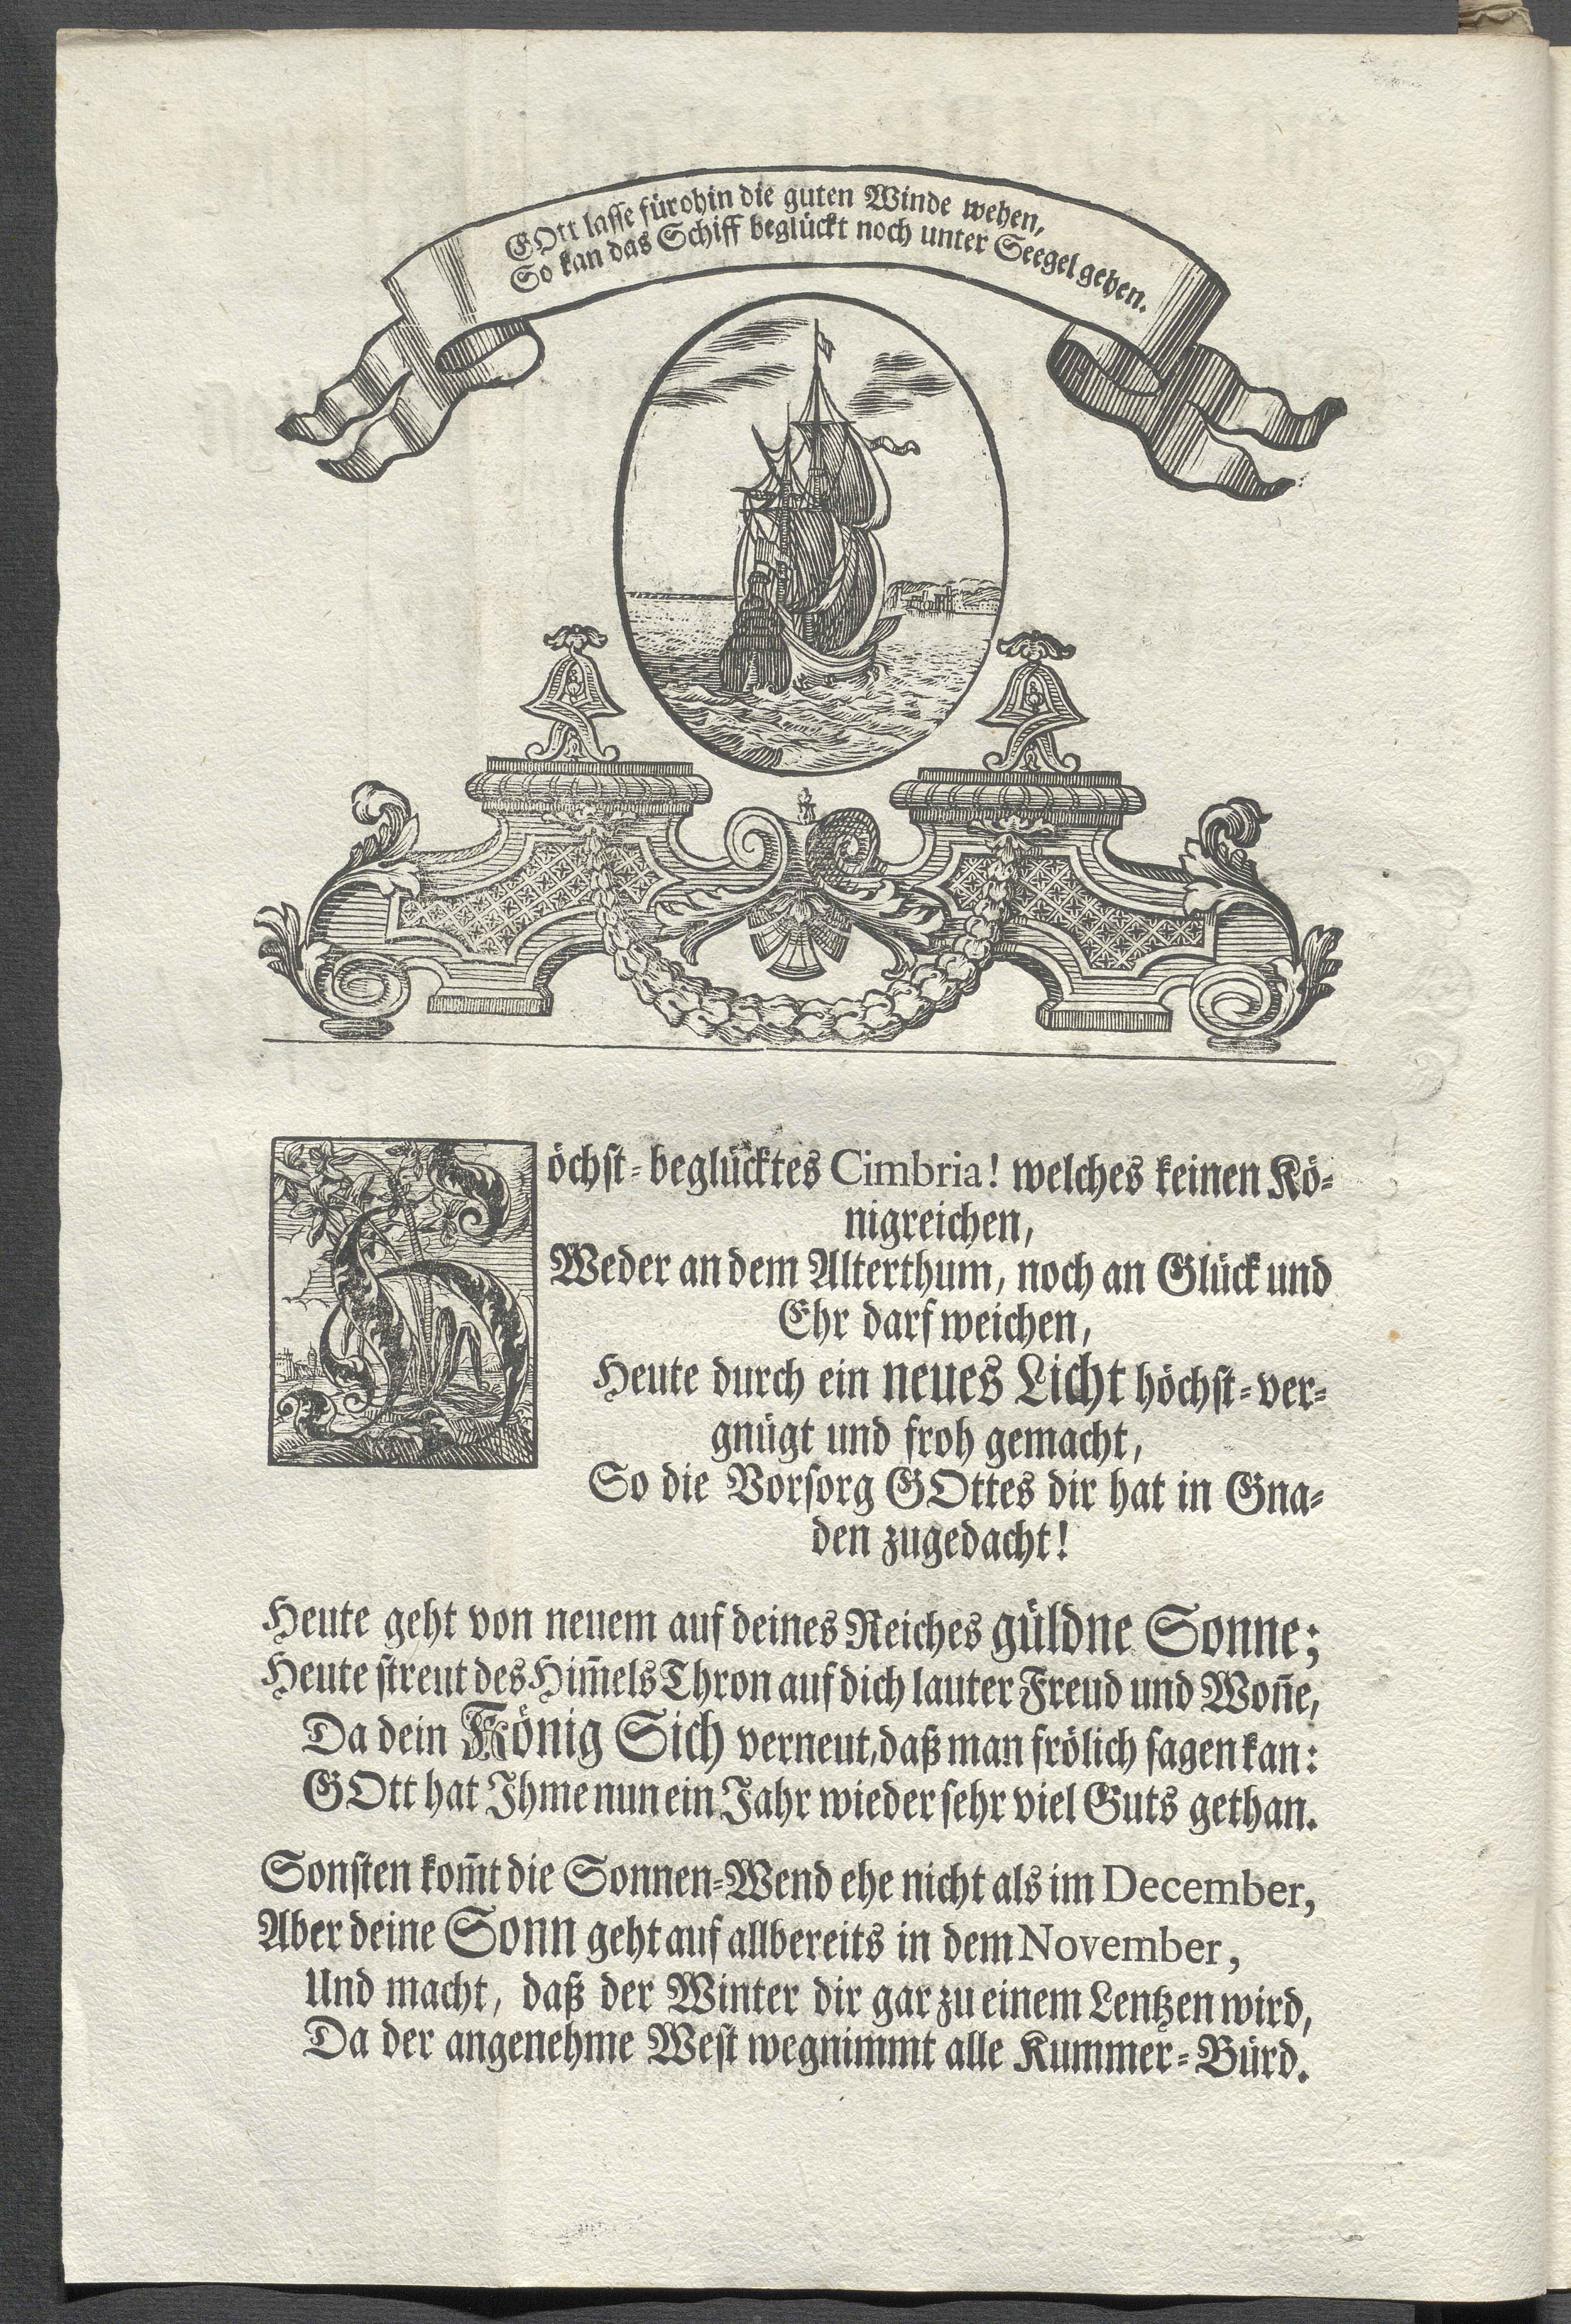 GOtt lasse fürohin die guten Winde wehen,
So kan das Schiff beglückt noch unter Seegel gehen.
Höchst-beglücktes Cimbria! welches keinen Kö-
nigreichen,
Weder an dem Alterthum, noch an Glück und
Ehr darf weichen,
Heute durch ein neues Licht höchst-ver-
gnügt und froh gemacht,
So die Vorsorg GOttes dir hat in Gna-
den zugedacht!
Heute geht von neuem auf deines Reiches güldne Sonne;
Heute streut des Him̄els Thron auf dich lauter Freud und Won̄e,
Da dein König Sich verneut, daß man frölich sagen kan:
GOtt hat Ihme nun ein Jahr wieder sehr viel Guts gethan.
Sonsten kom̄t die Sonnen-Wend ehe nicht als im December,
Aber deine Sonn geht auf allbereits in dem November,
Und macht, daß der Winter dir gar zu einem Lentzen wird,
Da der angenehme West wegnimmt alle Kummer-Bürd.